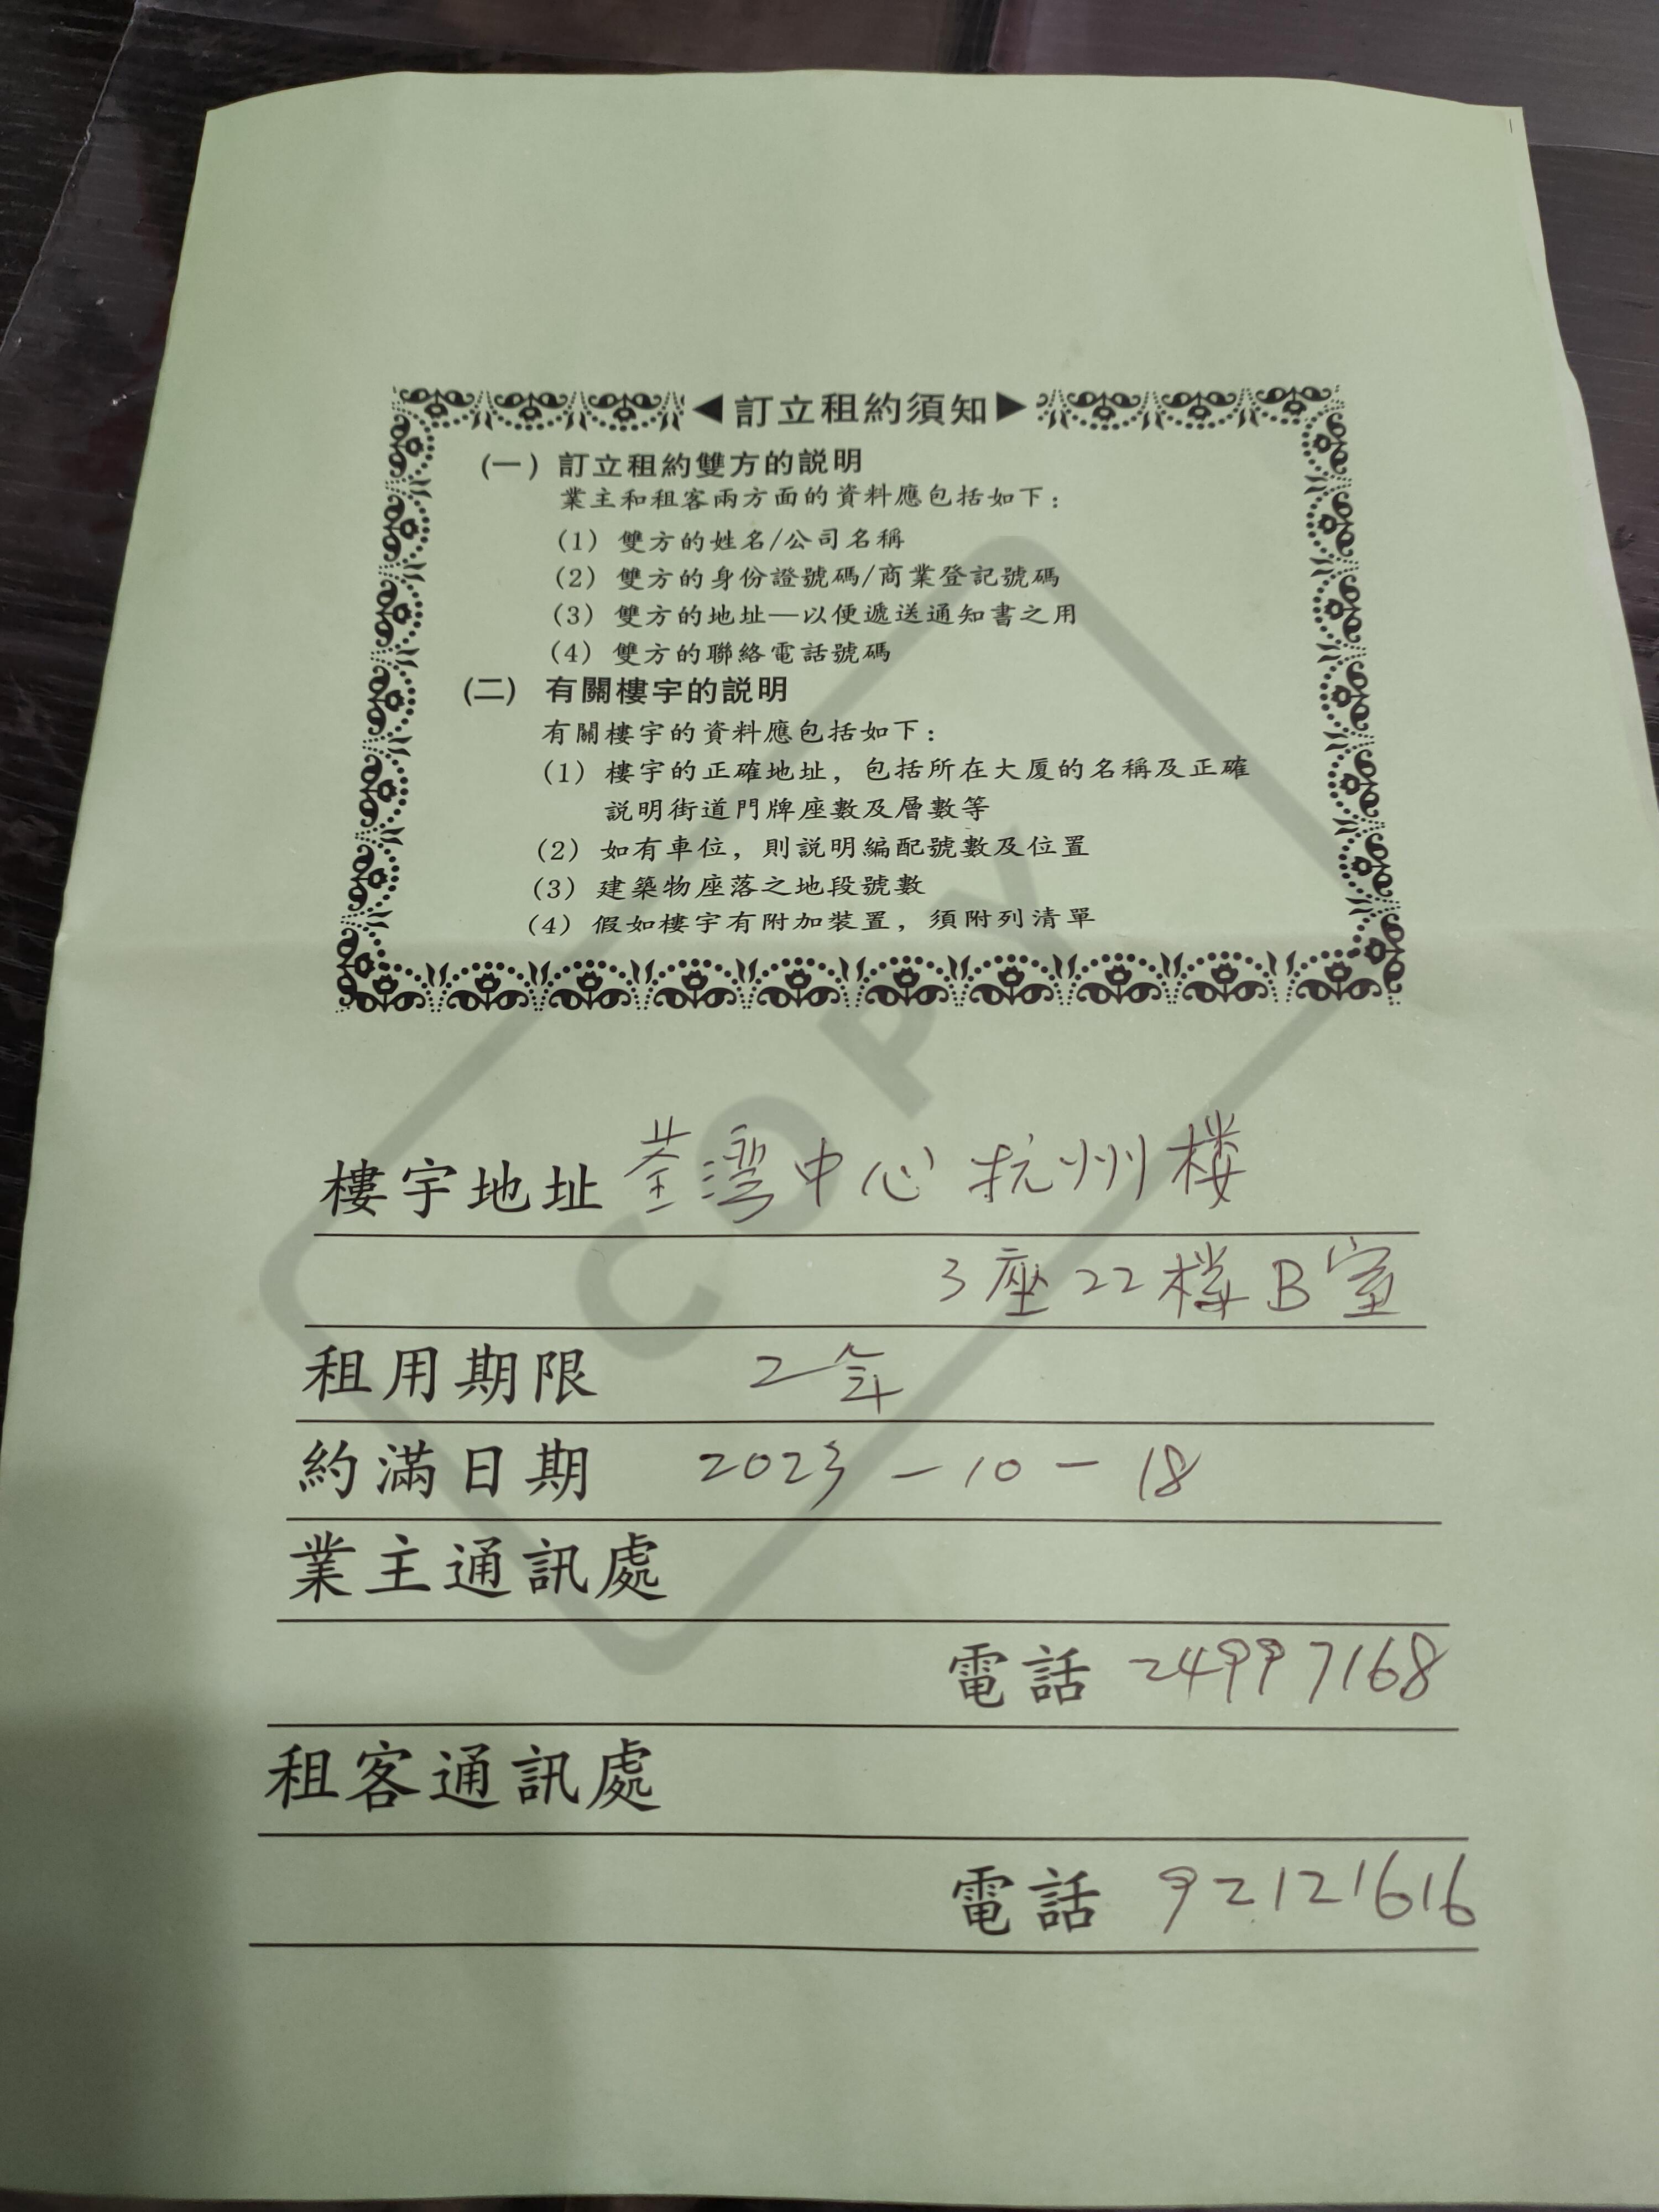 ◀訂立租約須知▶
(一) 訂立租約雙方的説明
業主和租客兩方面的資料應包括如下：
(1) 雙方的姓名/公司名稱
(2) 雙方的身份證號碼/商業登記號碼
(3) 雙方的地址—以便遞送通知書之用
(4) 雙方的聯絡電話號碼
(二) 有關樓宇的説明
有關樓宇的資料應包括如下：
(1) 樓宇的正確地址，包括所在大厦的名稱及正確
説明街道門牌座數及層數等
(2) 如有車位，則説明編配號數及位置
(3) 建築物座落之地段號數
(4) 假如樓宇有附加裝置，須附列清單
COPY
樓宇地址 荃灣中心 杭州楼
3座22楼B室
租用期限 2年
約滿日期 2023-10-18
業主通訊處
電話 24997168
租客通訊處
電話 92121616